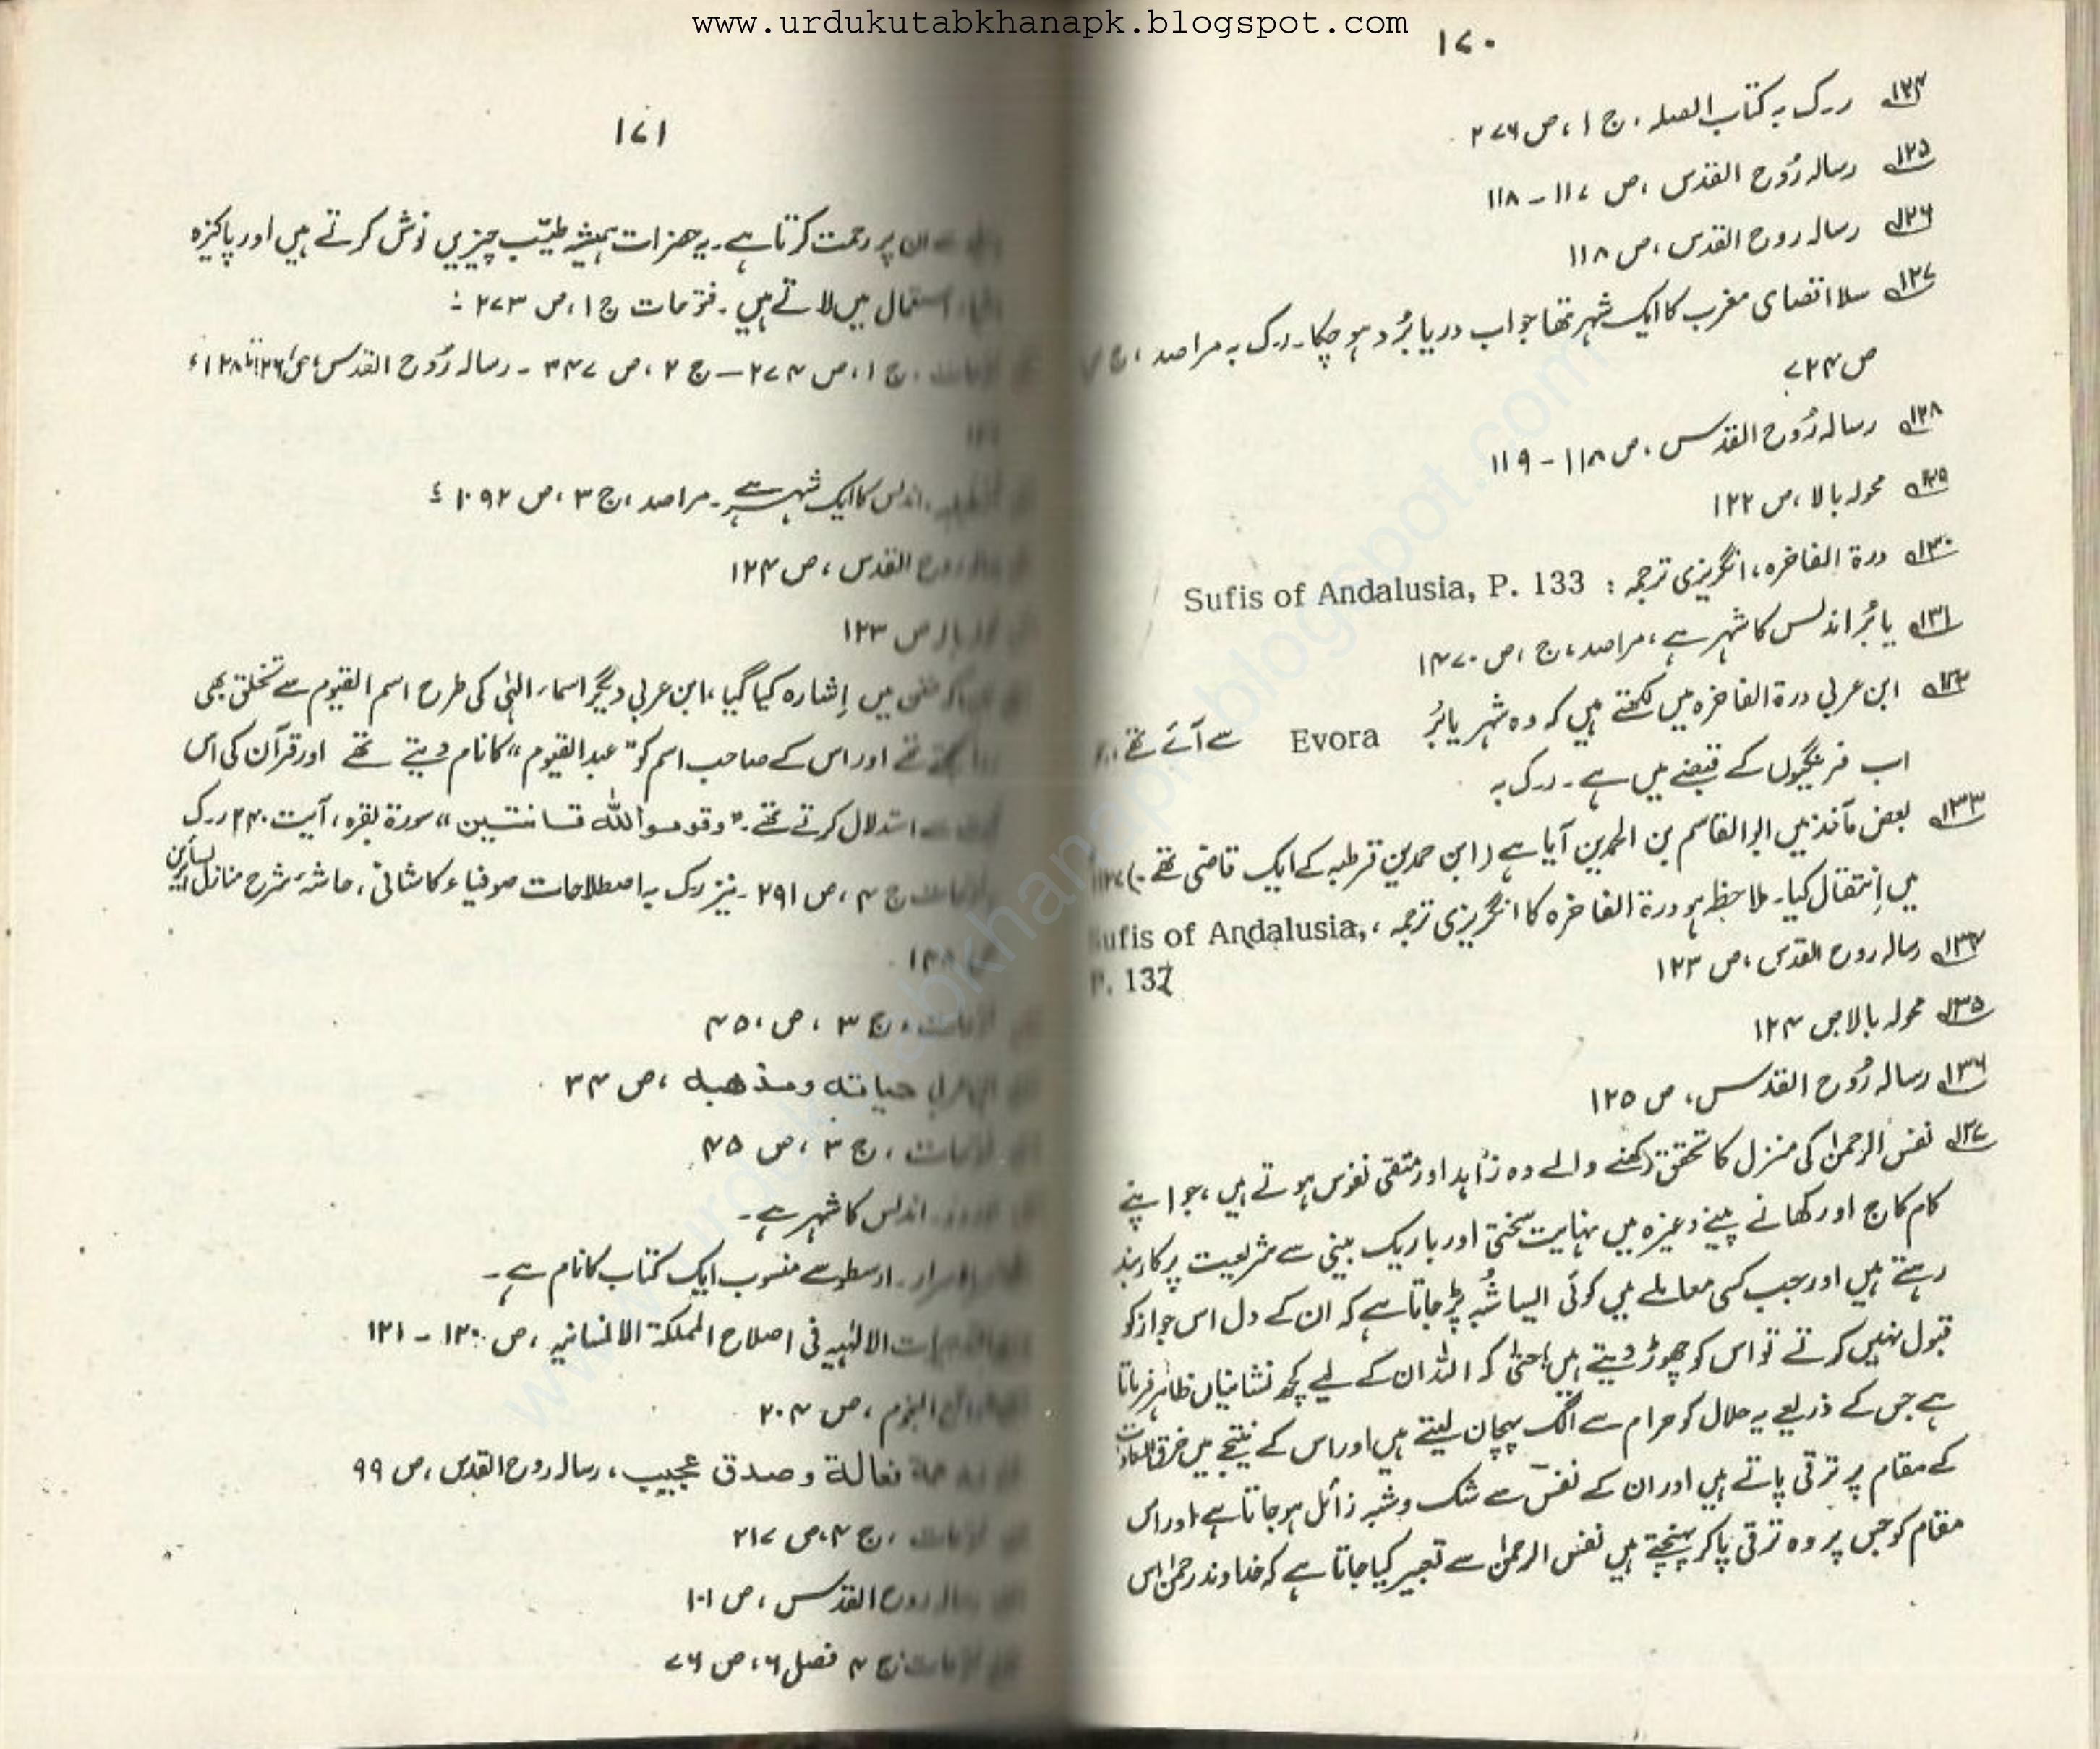 www.urdukutabkhanapk.blogspot.com
۱۷۰
۱۲۴ ر۔ک بہ کتاب الصلہ، ج ۱، ص ۲۷۶
۱۲۵ رسالہ رُوح القدس، ص ۱۱۷ - ۱۱۸
۱۲۶ رسالہ روح القدس، ص ۱۱۸
۱۲۷ سلا اقصای مغرب کا ایک شہر تھا جو اب دریا بُرد ہو چکا۔ ر۔ک بہ مراصد، ج
ص ۷۲۴
۱۲۸ رسالہ رُوح القدس، ص ۱۱۸ - ۱۱۹
محولہ بالا، ص ۱۲۲
۱۳۰ درۃ الفاخرہ، انگریزی ترجمہ : Sufis of Andalusia, P. 133
۱۳۱ یابُر اندلس کا شہر ہے، مراصد، ج ، ص ۱۴۷۰
ابن عربی درۃ الفاخرہ میں لکھتے ہیں کہ وہ شہر یابُر Evora سے آئے تھے
اب فرنگیوں کے قبضے میں ہے۔ ر۔ک بہ
۱۳۳ بعض مآخذ میں ابو القاسم بن الحمدین آیا ہے (ابن حمدین قرطبہ کے ایک قاضی تھے
میں اِنتقال کیا۔ ملاحظہ ہو درۃ الفاخرہ کا انگریزی ترجمہ، Sufis of Andalusia,
P. 137
۱۳۴ رسالہ روح القدس، ص ۱۲۳
۱۳۵ محولہ بالا ص ۱۲۴
۱۳۶ رسالہ رُوح القدس، ص ۱۲۵
۱۳۷ نفس الرحمٰن کی منزل کا تحقق رکھنے والے وہ زاہد اور متقی نفوس ہوتے ہیں، جو اپنے
کام کاج اور کھانے پینے وغیرہ میں نہایت سختی اور باریک بینی سے شریعت پر کاربند
رہتے ہیں اور جب کسی معاملے میں کوئی ایسا شُبہ پڑ جاتا ہے کہ ان کے دل اس جواز کو
قبول نہیں کرتے تو اس کو چھوڑ دیتے ہیں، حتیٰ کہ اللہ ان کے لیے کچھ نشانیاں ظاہر فرماتا
ہے جس کے ذریعے یہ حلال کو حرام سے الگ پہچان لیتے ہیں اور اس کے نتیجے میں خرق العادات
کے مقام پر ترقی پاتے ہیں اور ان کے نفس سے شک و شبہ زائل ہو جاتا ہے اور اس
مقام کو جس پر وہ ترقی پا کر پہنچتے ہیں نفس الرحمٰن سے تعبیر کیا جاتا ہے کہ خداوند رحمٰن اس
۱۷۱
سے ان پر رحمت کرتا ہے۔ یہ حضرات ہمیشہ طیّب چیزیں نوش کرتے ہیں اور پاکیزہ
استعمال میں لاتے ہیں۔ فتوحات ج ۱، ص ۲۷۳ :
ج ۱، ص ۲۷۴ — ج ۲، ص ۳۴۷ - رسالہ رُوح القدس، ص ۱۲۶ تا ۱۲۸،
اندلس کا ایک شہر ہے۔ مراصد، ج ۳، ص ۱۰۹۲
روح القدس، ص ۱۲۴
ص ۱۲۳
میں اِشارہ کیا گیا، ابن عربی دیگر اسماء الہٰی کی طرح اسم القیوم سے تخلق بھی
تھے اور اس کے صاحب اسم کو "عبد القیوم" کا نام دیتے تھے اور قرآن کی اس
سے استدلال کرتے تھے۔ "وقوموا للہ قانتین" سورۃ بقرہ، آیت ۲۴۰ ر۔ک
ج ۴، ص ۲۹۱ - نیز ر۔ک بہ اصطلاحات صوفیاء کاشانی، حاشیہ شرح منازل السائرین
ج ۳، ص ۴۵۰
حیاتہ ومذھبہ، ص ۳۴
ج ۳، ص ۴۵
اندلس کا شہر ہے۔
ارسطو سے منسوب ایک کتاب کا نام ہے۔
الالٰہیہ فی اصلاح المملکۃ الانسانیہ، ص ۱۲۰ - ۱۲۱
النجوم، ص ۲۰۴
فعالۃ وصدق عجیب، رسالہ روح القدس، ص ۹۹
ج ۴، ص ۲۱۷
روح القدس، ص ۱۰۱
ج ۴ فصل ۶، ص ۷۶